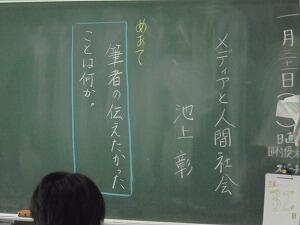 一月三十日(
日直
メディアと人間社会
池上彰
めあて
筆者の伝えたかった
ことは何か。